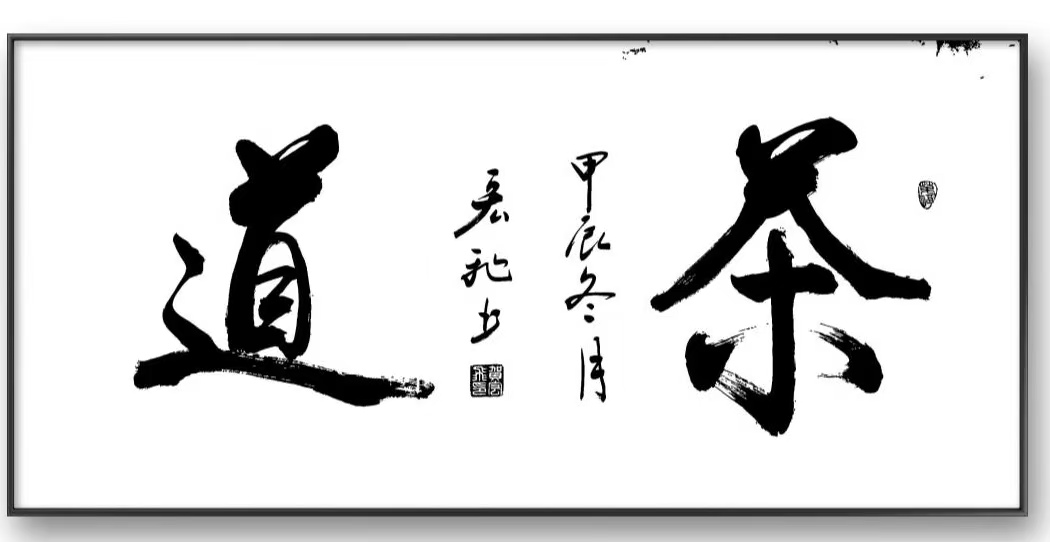 茶
甲辰冬月
宏飛书
道